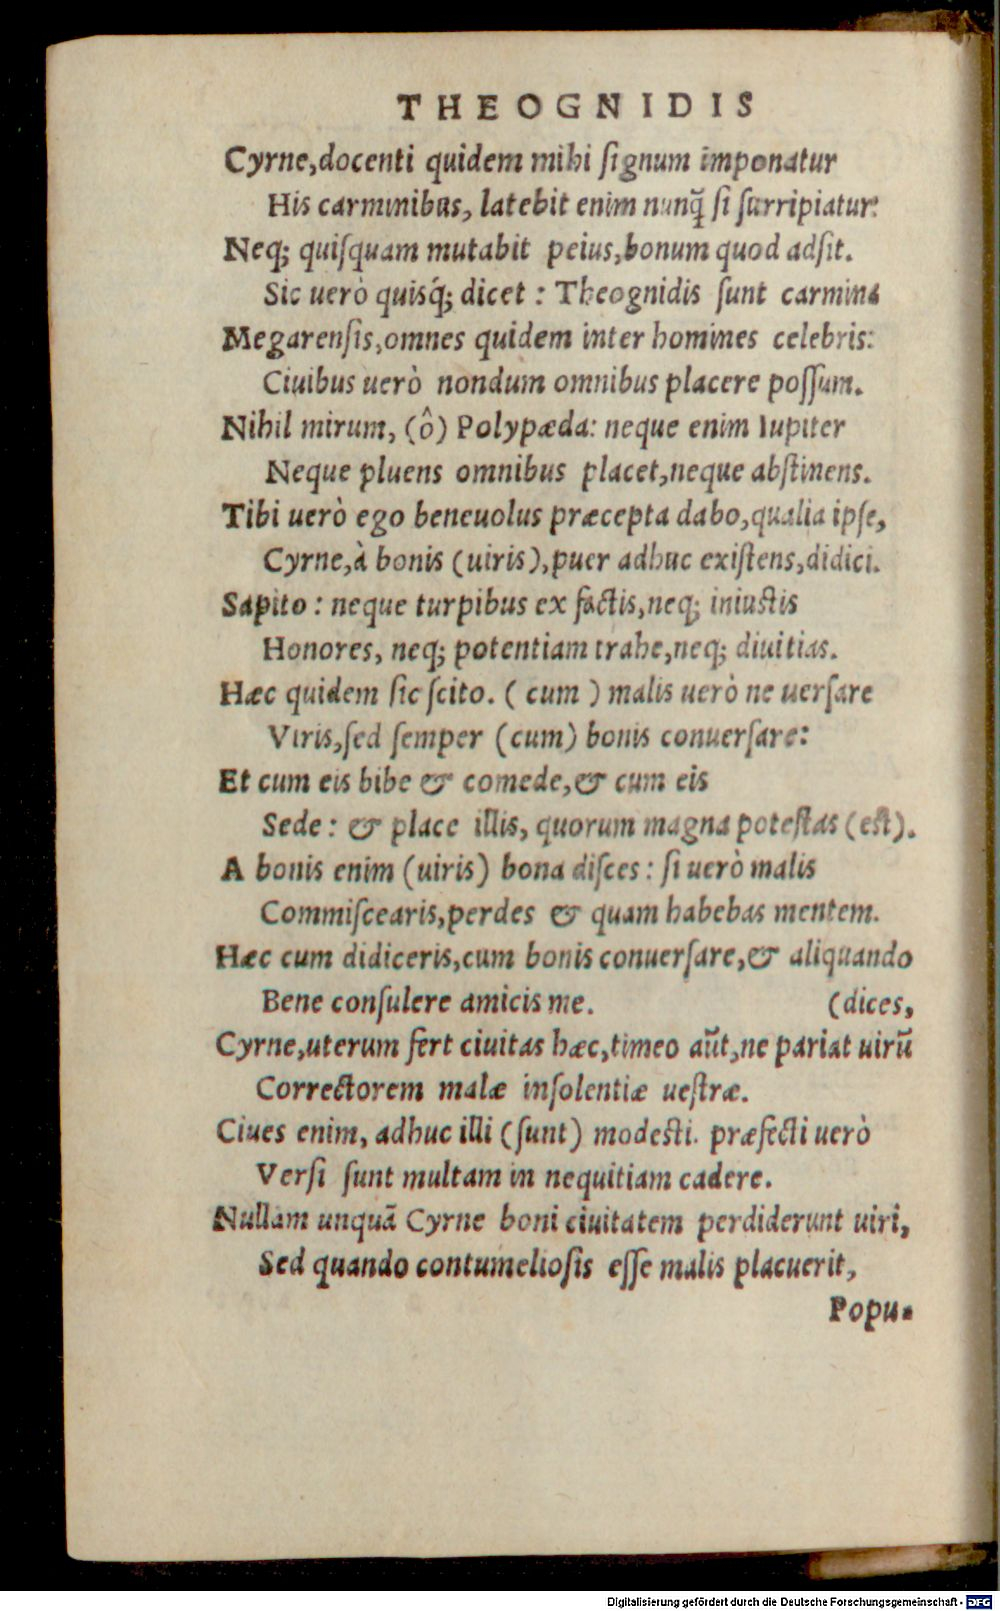 THEOGNIDIS
Cyrne,docenti quidem mihi ſignum imponatur
His carminibus, latebit enim nunq̃ ſi ſurripiatur:
Neq; quiſquam mutabit peius,bonum quod adſit.
Sic uerò quisq́; dicet : Theognidis ſunt carmina
Megarenſis,omnes quidem inter homines celebris:
Ciuibus uerò nondum omnibus placere poſſum.
Nihil mirum, (ô) Polypæda: neque enim Iupiter
Neque pluens omnibus placet,neque abſtinens.
Tibi uerò ego beneuolus præcepta dabo,qualia ipſe,
Cyrne,à bonis (uiris),puer adhuc exiſtens,didici.
Sapito : neque turpibus ex factis,neq; iniustis
Honores, neq; potentiam trahe,neq; diuitias.
Hæc quidem ſic ſcito. ( cum ) malis uerò ne uerſare
Viris,ſed ſemper (cum) bonis conuerſare:
Et cum eis bibe & comede,& cum eis
Sede : & place illis, quorum magna poteſtas (est).
A bonis enim (uiris) bona diſces : ſi uerò malis
Commiſcearis,perdes & quam habebas mentem.
Hæc cum didiceris,cum bonis conuerſare,& aliquando
Bene conſulere amicis me. (dices,
Cyrne,uterum fert ciuitas hæc,timeo aũt,ne pariat uirũ
Correctorem malæ inſolentiæ ueſtræ.
Ciues enim, adhuc illi (ſunt) modesti. præfecti uerò
Verſi ſunt multam in nequitiam cadere.
Nullam unquã Cyrne boni ciuitatem perdiderunt uiri,
Sed quando contumelioſis eſſe malis placuerit,
Popu-
Digitalisierung gefördert durch die Deutsche Forschungsgemeinschaft - DFG